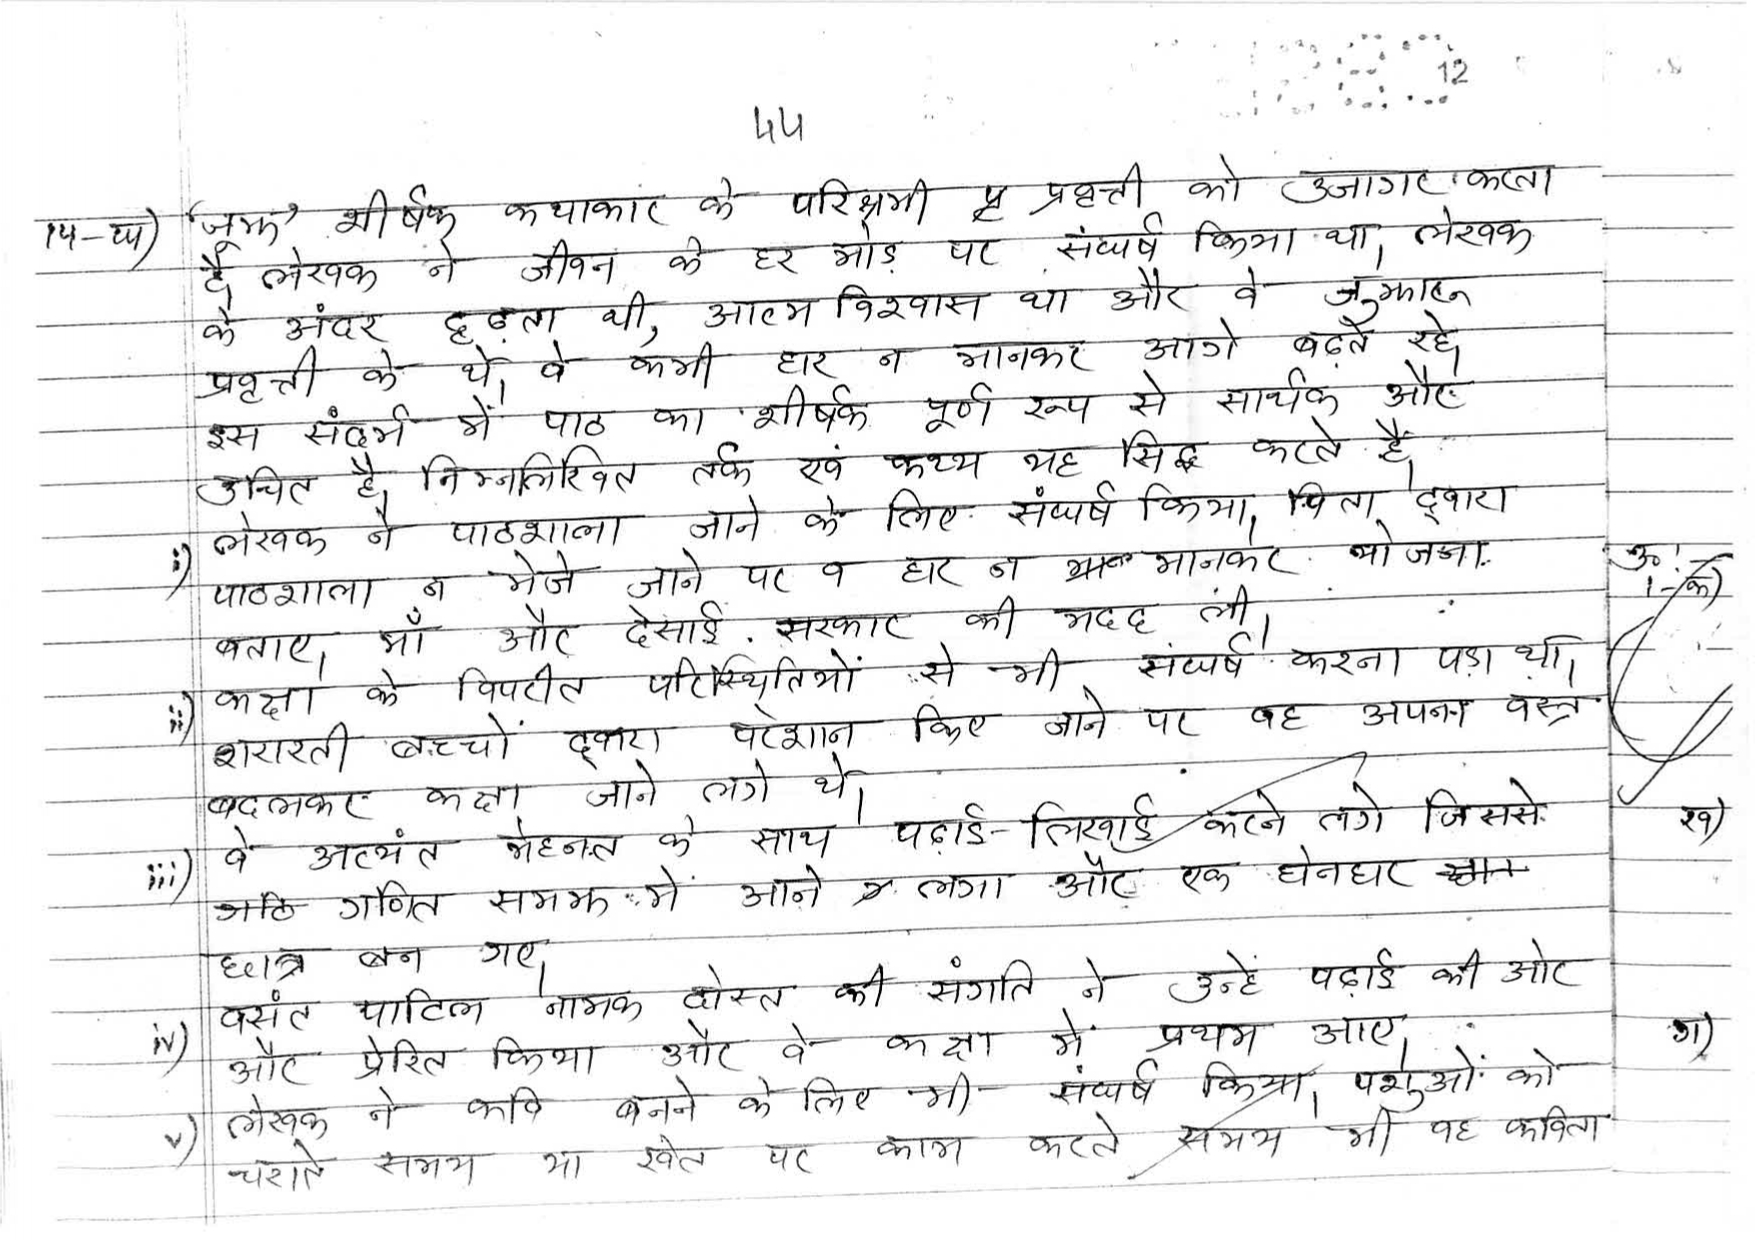 12
44
14-घ) 'जूझ' शीर्षक कथाकार के परिश्रमी प्रवृत्ती को उजागर करता
है। लेखक ने जीवन के हर मोड़ पर संघर्ष किया था। लेखक
के अंदर दृढ़ता थी, आत्म विश्वास था और वे जुझारू
प्रवृत्ती के थे। वे कभी हार न मानकर आगे बढ़ते रहे।
इस संदर्भ में पाठ का शीर्षक पूर्ण रूप से सार्थक और
उचित है। निम्नलिखित तर्क एवं कथ्य यह सिद्ध करते है।
i) लेखक ने पाठशाला जाने के लिए संघर्ष किया। पिता द्वारा
पाठशाला न भेजे जाने पर व हार न मानकर योजना
बनाए। माँ और देसाई सरकार की मदद ली।
ii) कक्षा के विपरीत परिस्थितियों से भी संघर्ष करना पड़ा था।
शरारती बच्चों द्वारा परेशान किए जाने पर वह अपना वस्त्र
बदलकर कक्षा जाने लगे थे।
iii) वे अत्यंत मेहनत के साथ पढ़ाई-लिखाई करने लगे जिससे
गणित समझ में आने लगा और एक होनहार
छात्र बन गए।
iv) वसंत पाटिल नामक दोस्त की संगति ने उन्हें पढ़ाई की ओर
और प्रेरित किया और वे कक्षा में प्रथम आए।
v) लेखक ने कवि बनने के लिए भी संघर्ष किया। पशुओं को
चराते समय या खेत पर काम करते समय भी वह कविता
उ०
1-क)
ख)
ग)